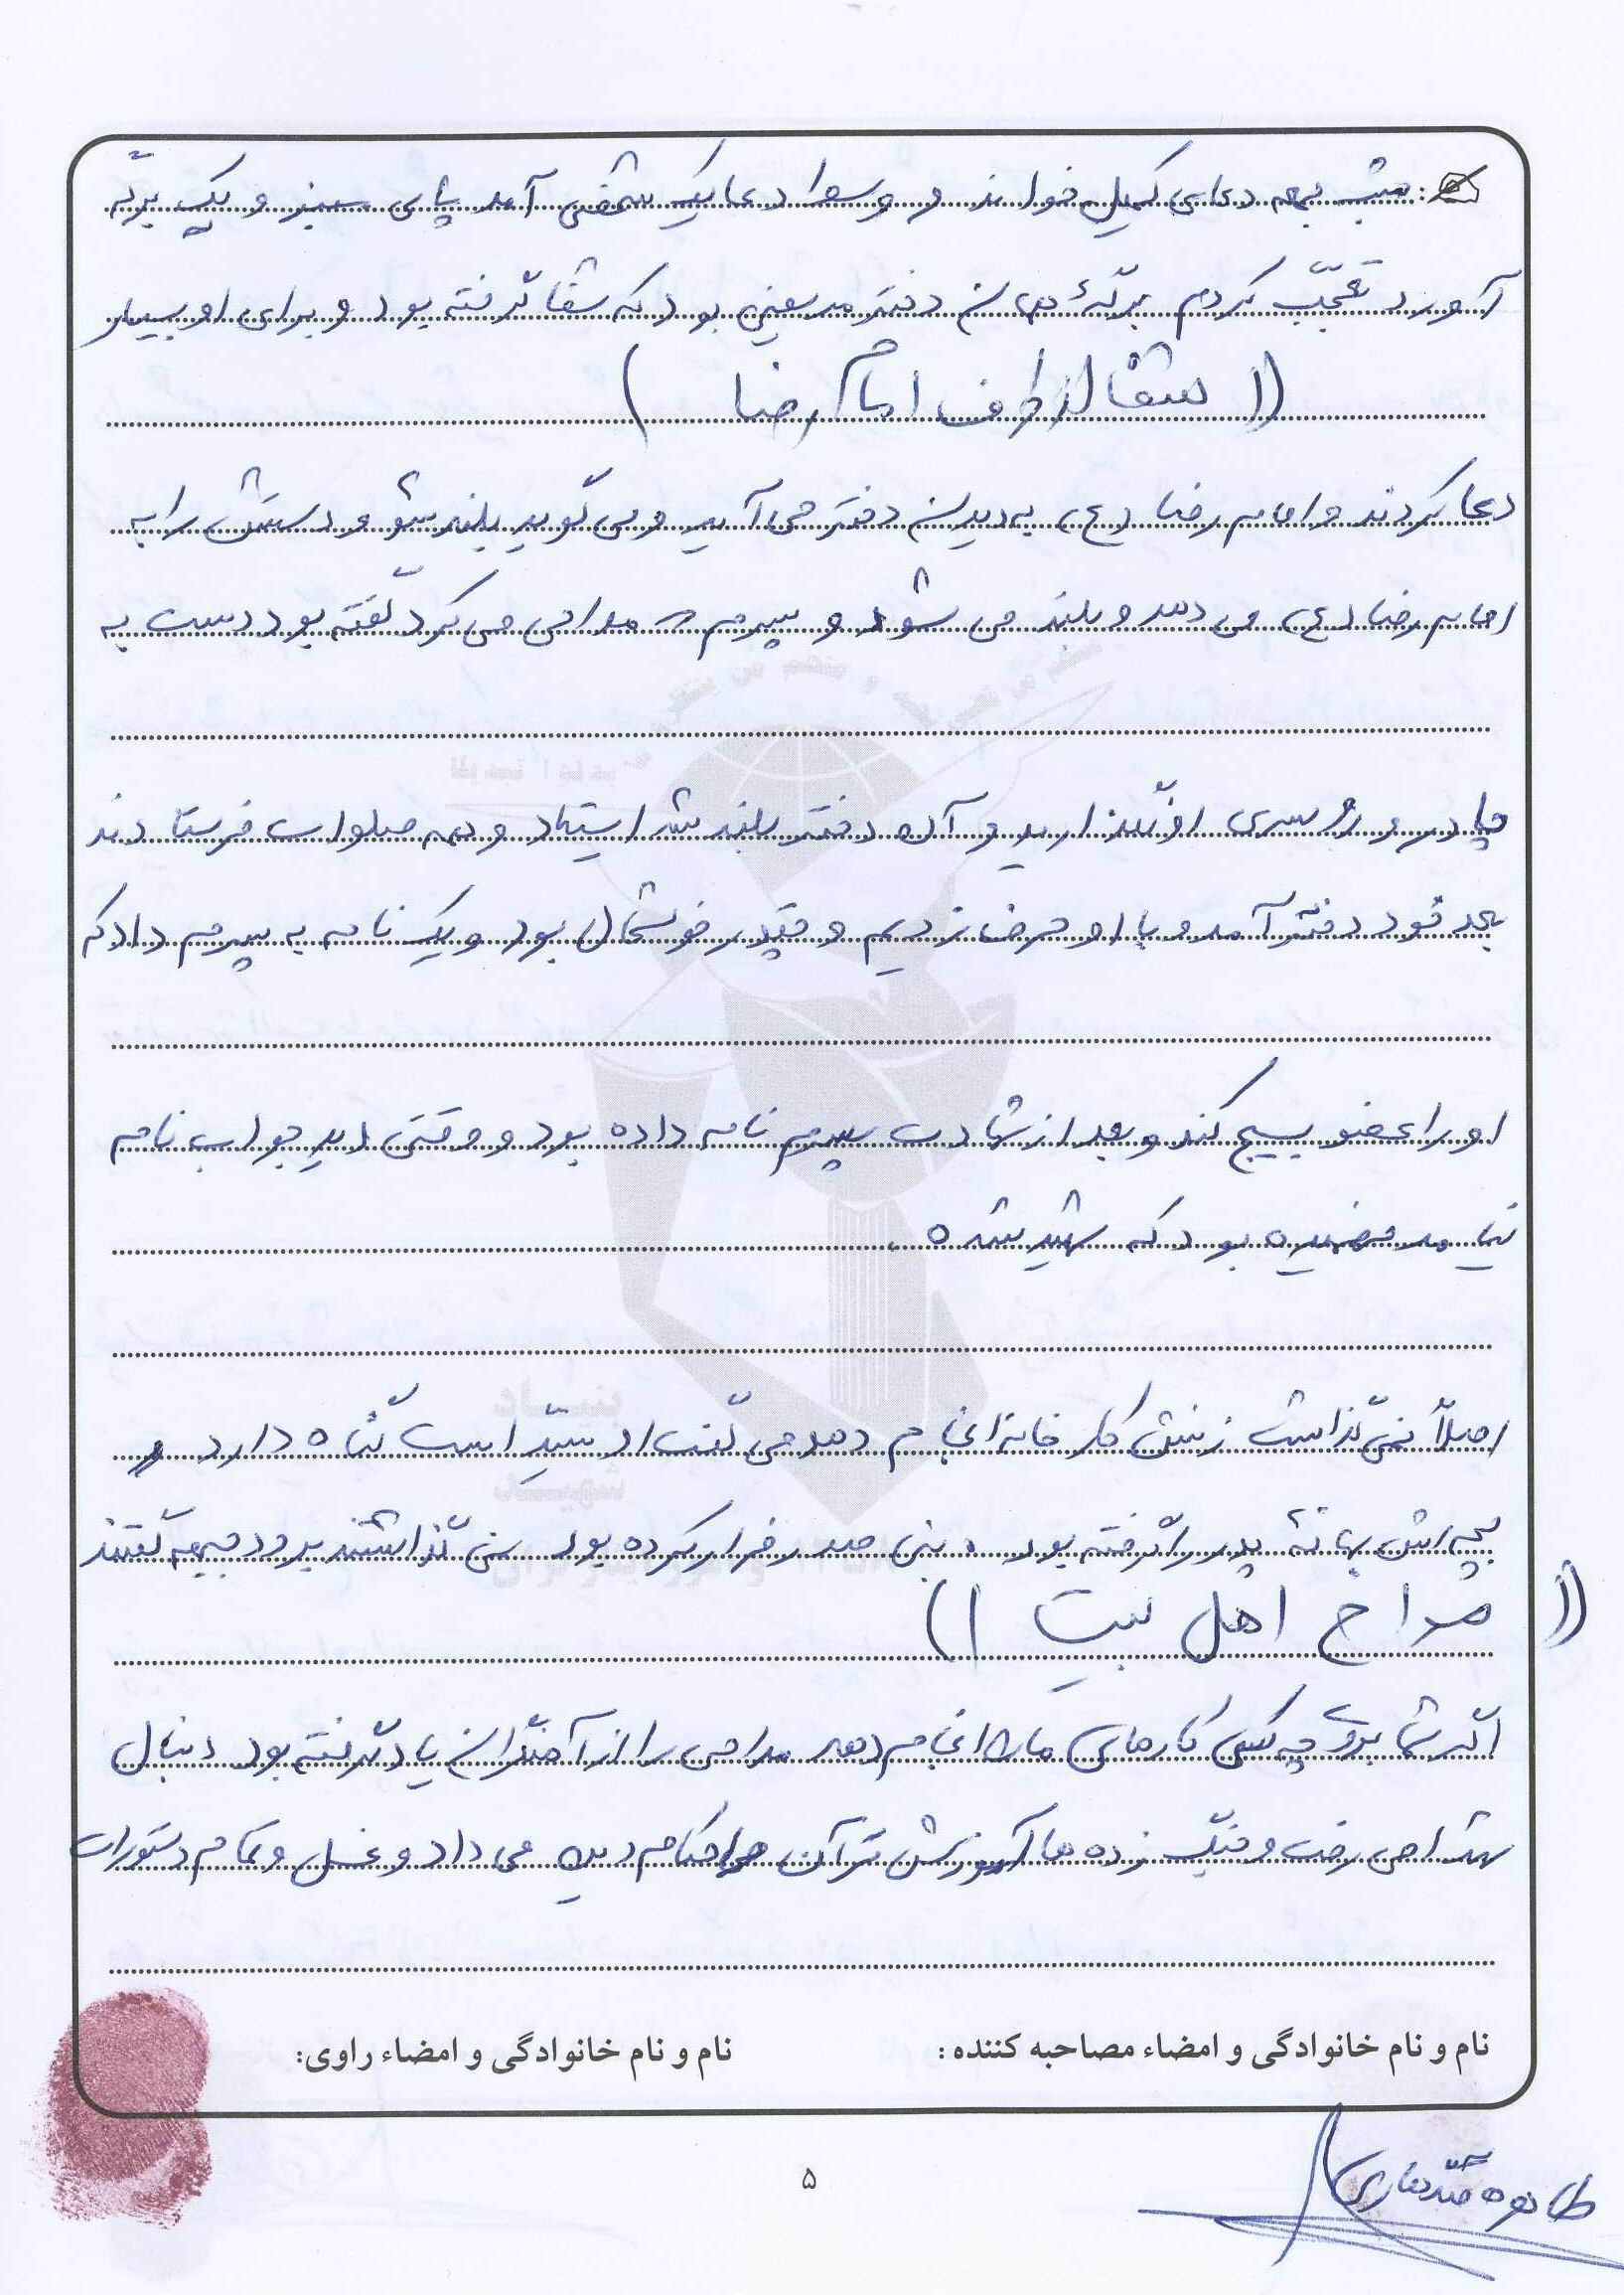 شب جمعه دعای کمیل خواند و وسط دعا یک شخصی آمد شال سبز و یک برگه
آورد تعجّب کردم برگهٔ همان دختر مریضی بود که شفا گرفته بود و برای او بسیار
(( شفا از طرف امام رضا )
دعا کردند و امام رضا (ع) به دیدن دختر می آید و می گوید بلند شو و دستش را به
امام رضا (ع) می دهد و بلند می شود و پسرم مداحی می کرد گفته بود دست به
چادر و روسری او نگذارید و آن دختر بلند شد ایستاد و همه صلوات فرستادند
بعد خود دختر آمد و با او حرف زدیم و چقدر خوشحال بود و یک نامه به پسرم داد که
او را عضو بسیج کند و بعد از شهادت پسرم نامه داده بود و وقتی دید جواب نامه
نیامد فهمیده بود که شهید شده .
اصلاً نمی گذاشت زنش کار خانه انجام دهد می گفت او سیّد است گناه دارد و
بچه اش بهانهٔ پدر را گرفته بود بنی صدر فرار کرده بود نمی گذاشتند برود جبهه گفتند
(( مداح اهل بیت ))
اگر شما بروی چه کسی کارهای ما را انجام دهد مداحی را از آهنگران یاد گرفته بود دنبال
رفت و جنگ زده ها آموزش قرآن و احکام دین می داد و غسل و تمام دستورات
نام و نام خانوادگی و امضاء مصاحبه کننده :
نام و نام خانوادگی و امضاء راوی:
۵
طاهره قندهاری